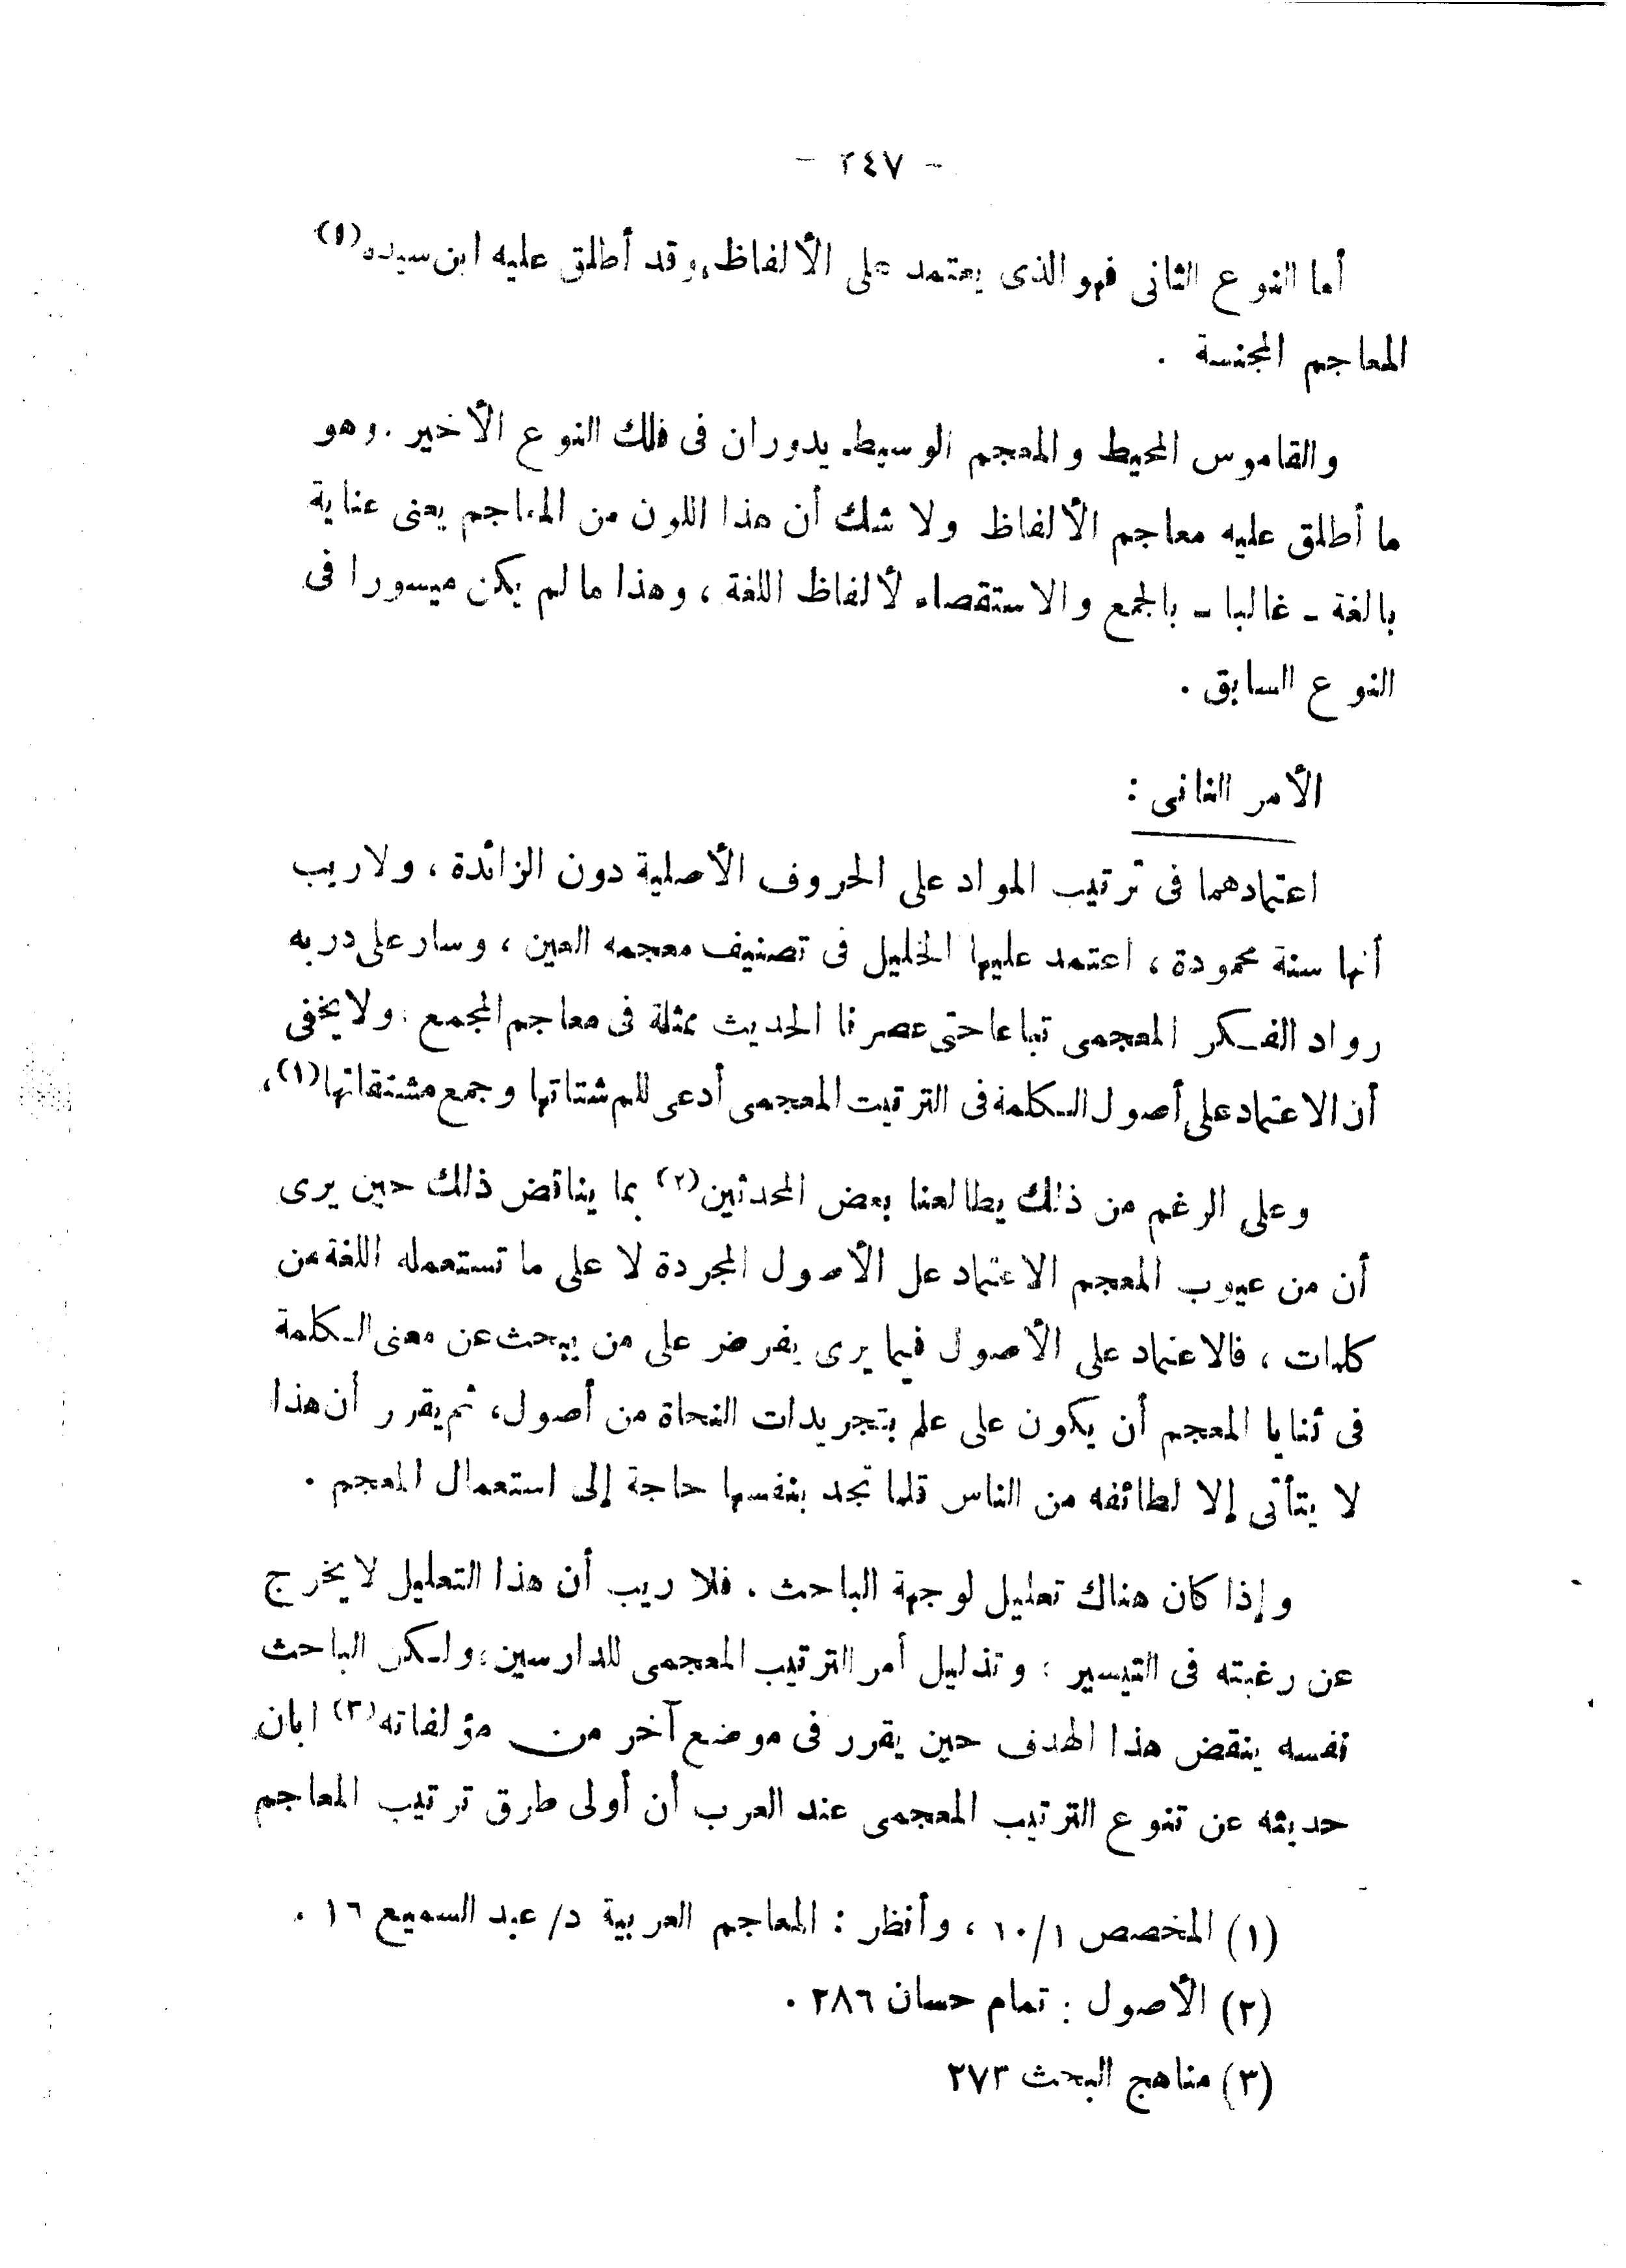 - ٢٤٧ -
أما النوع الثانى فهو الذى يعتمد على الألفاظ، وقد أطلق عليه ابن سيده(١)
المعاجم المجنسة .
والقاموس المحيط والمعجم الوسيط يدوران فى فلك النوع الأخير . وهو
ما أطلق عليه معاجم الألفاظ ولا شك أن هذا اللون من المعاجم يعنى عناية
بالغة - غالبا - بالجمع والاستقصاء لألفاظ اللغة ، وهذا ما لم يكن ميسورا فى
النوع السابق .
الأمر الثانى :
اعتمادهما فى ترتيب المواد على الحروف الأصلية دون الزائدة ، ولا ريب
أنها سنة محمودة ، اعتمد عليها الخليل فى تصنيف معجمه العين ، وسار على دربه
رواد الفكر المعجمى تباعا حتى عصرنا الحديث ممثلة فى معاجم المجمع . ولا يخفى
أن الاعتماد على أصول الكلمة فى الترتيت المعجمى أدعى للم شتاتها وجمع مشتقاتها(١) ،
وعلى الرغم من ذلك يطالعنا بعض المحدثين(٢) بما يناقض ذلك حين يرى
أن من عيوب المعجم الاعتماد عل الأصول المجردة لا على ما تستعمله اللغة من
كلمات ، فالاعتماد على الأصول فيما يرى يفرض على من يبحث عن معنى الكلمة
فى ثنايا المعجم أن يكون على علم بتجريدات النحاة من أصول ، ثم يقرر أن هذا
لا يتأتى إلا لطائفه من الناس قلما تجد بنفسها حاجة إلى استعمال المعجم .
وإذا كان هناك تعليل لوجهة الباحث . فلا ريب أن هذا التعليل لا يخرج
عن رغبته فى التيسير ؛ وتذليل أمر الترتيب المعجمى للدارسين ؛ ولكن الباحث
نفسه ينقض هذا الهدف حين يقرر فى موضع آخر من مؤلفاته(٣) ابان
حديثه عن تنوع الترتيب المعجمى عند العرب أن أولى طرق ترتيب المعاجم
(١) المخصص ١٠/١ ، وأنظر : المعاجم العربية د/ عبد السميع ١٦ .
(٢) الأصول : تمام حسان ٢٨٦ .
(٣) مناهج البحث ٢٧٣